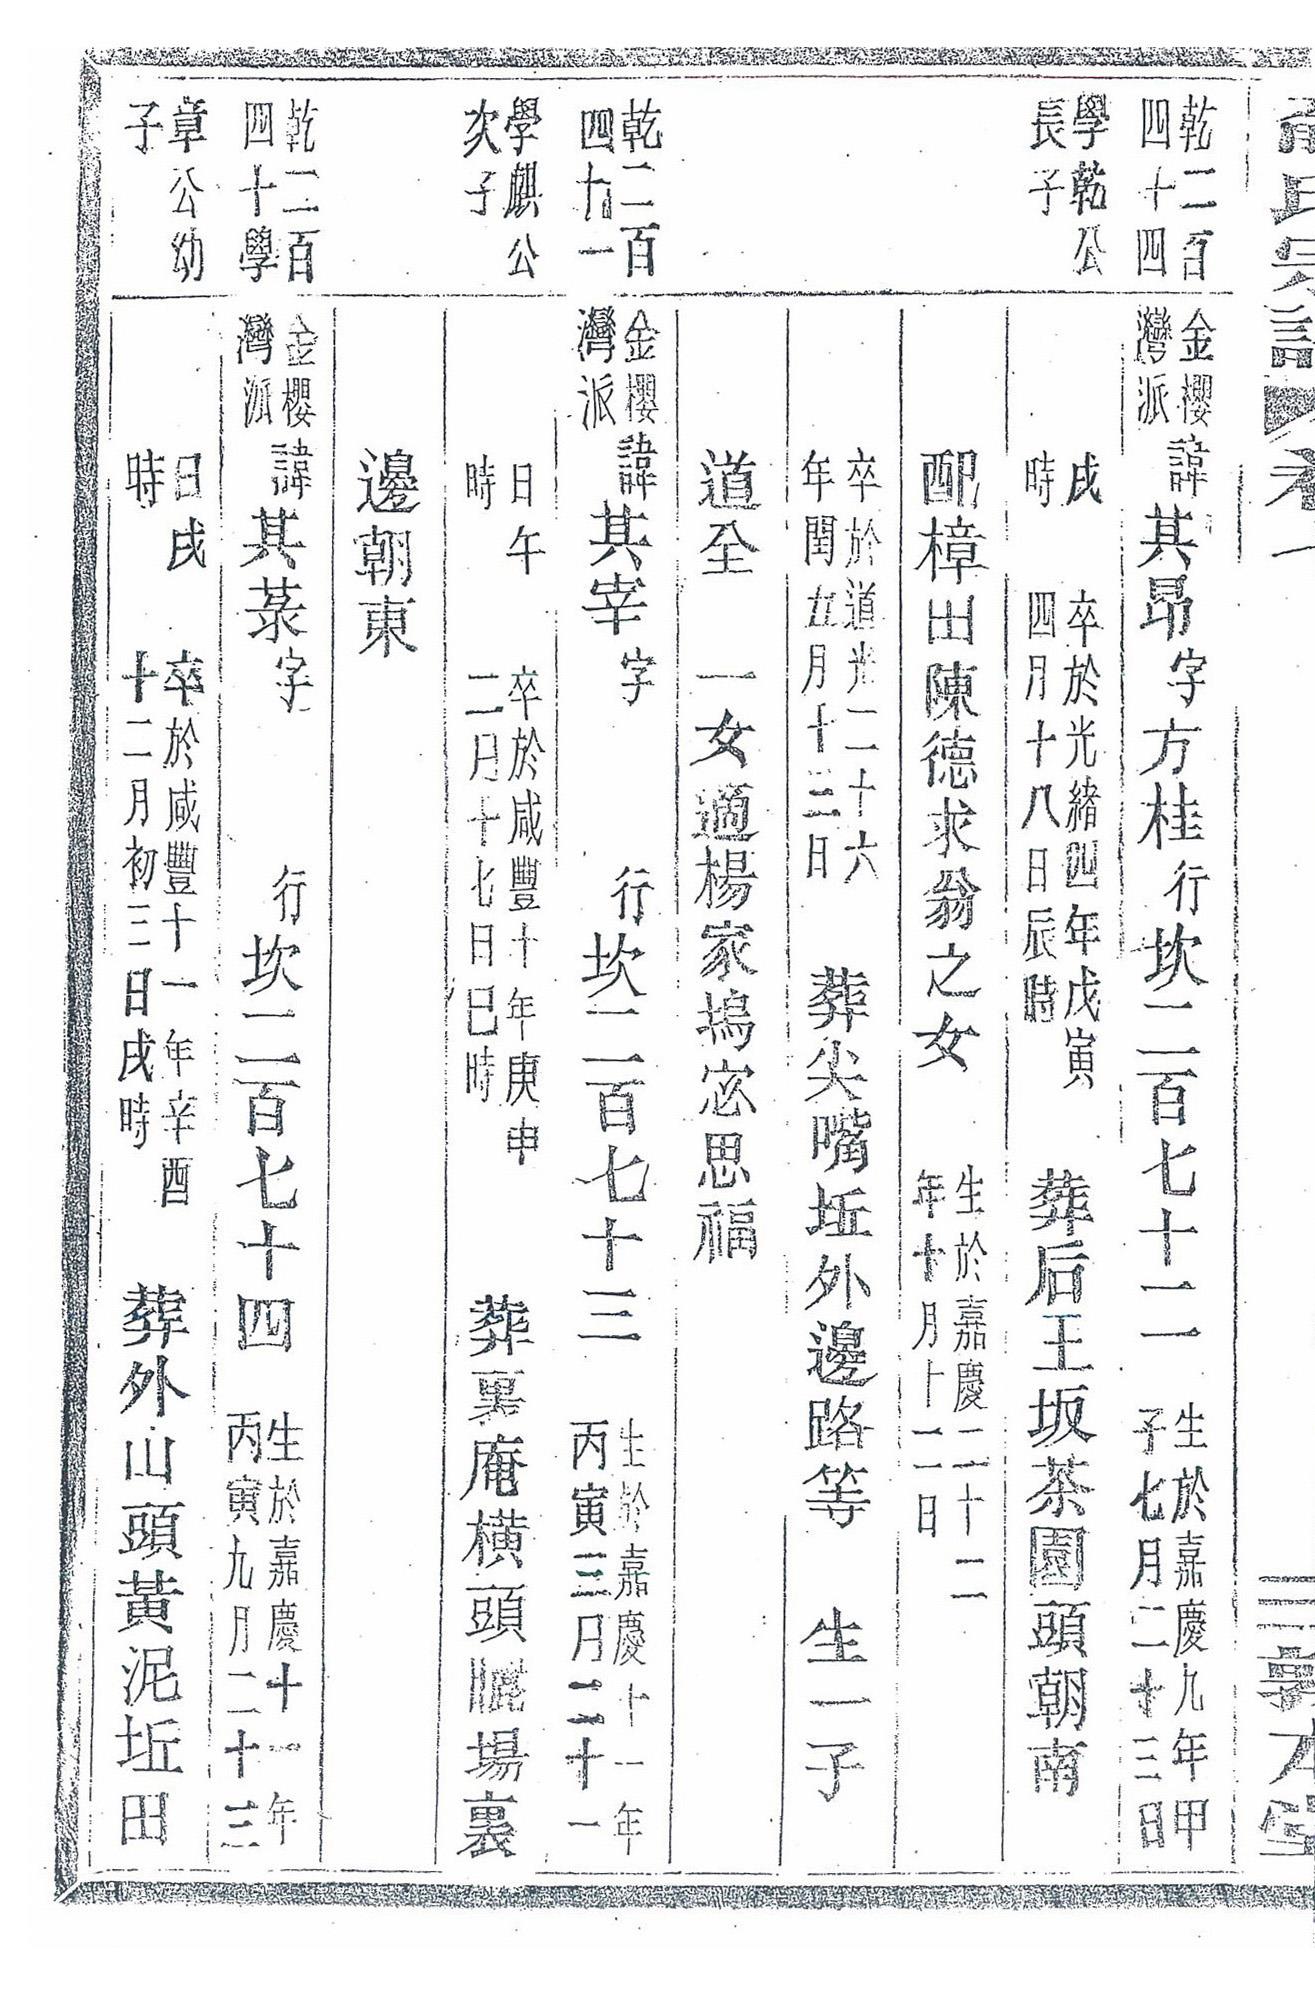 乾二百
四十四
學乾公
長子
金櫻
灣派
諱其昂字方桂行坎二百七十二
生於嘉慶九年甲
子七月二十三日
戌
時
卒於光緒四年戊寅
四月十八日辰時
葬后王坂茶園頭朝南
配樟田陳德求翁之女
生於嘉慶二十二
年十月十二日
卒於道光二十六
年閏五月十三日
葬尖嘴坵外邊路等 生一子
道全 一女適楊家塢宓思福
乾二百
四十一
學麒公
次子
金櫻
灣派
諱其宰字 行坎二百七十三
生於嘉慶十一年
丙寅三月二十一
日午
時
卒於咸豐十年庚申
二月十七日巳時
葬裏庵橫頭曬場裏
邊朝東
乾二百
四十學
章公幼
子
金櫻
灣派
諱其菉字 行坎二百七十四
生於嘉慶十一年
丙寅九月二十三
日戌
時
卒於咸豐十一年辛酉
十二月初三日戌時
葬外山頭黃泥坵田